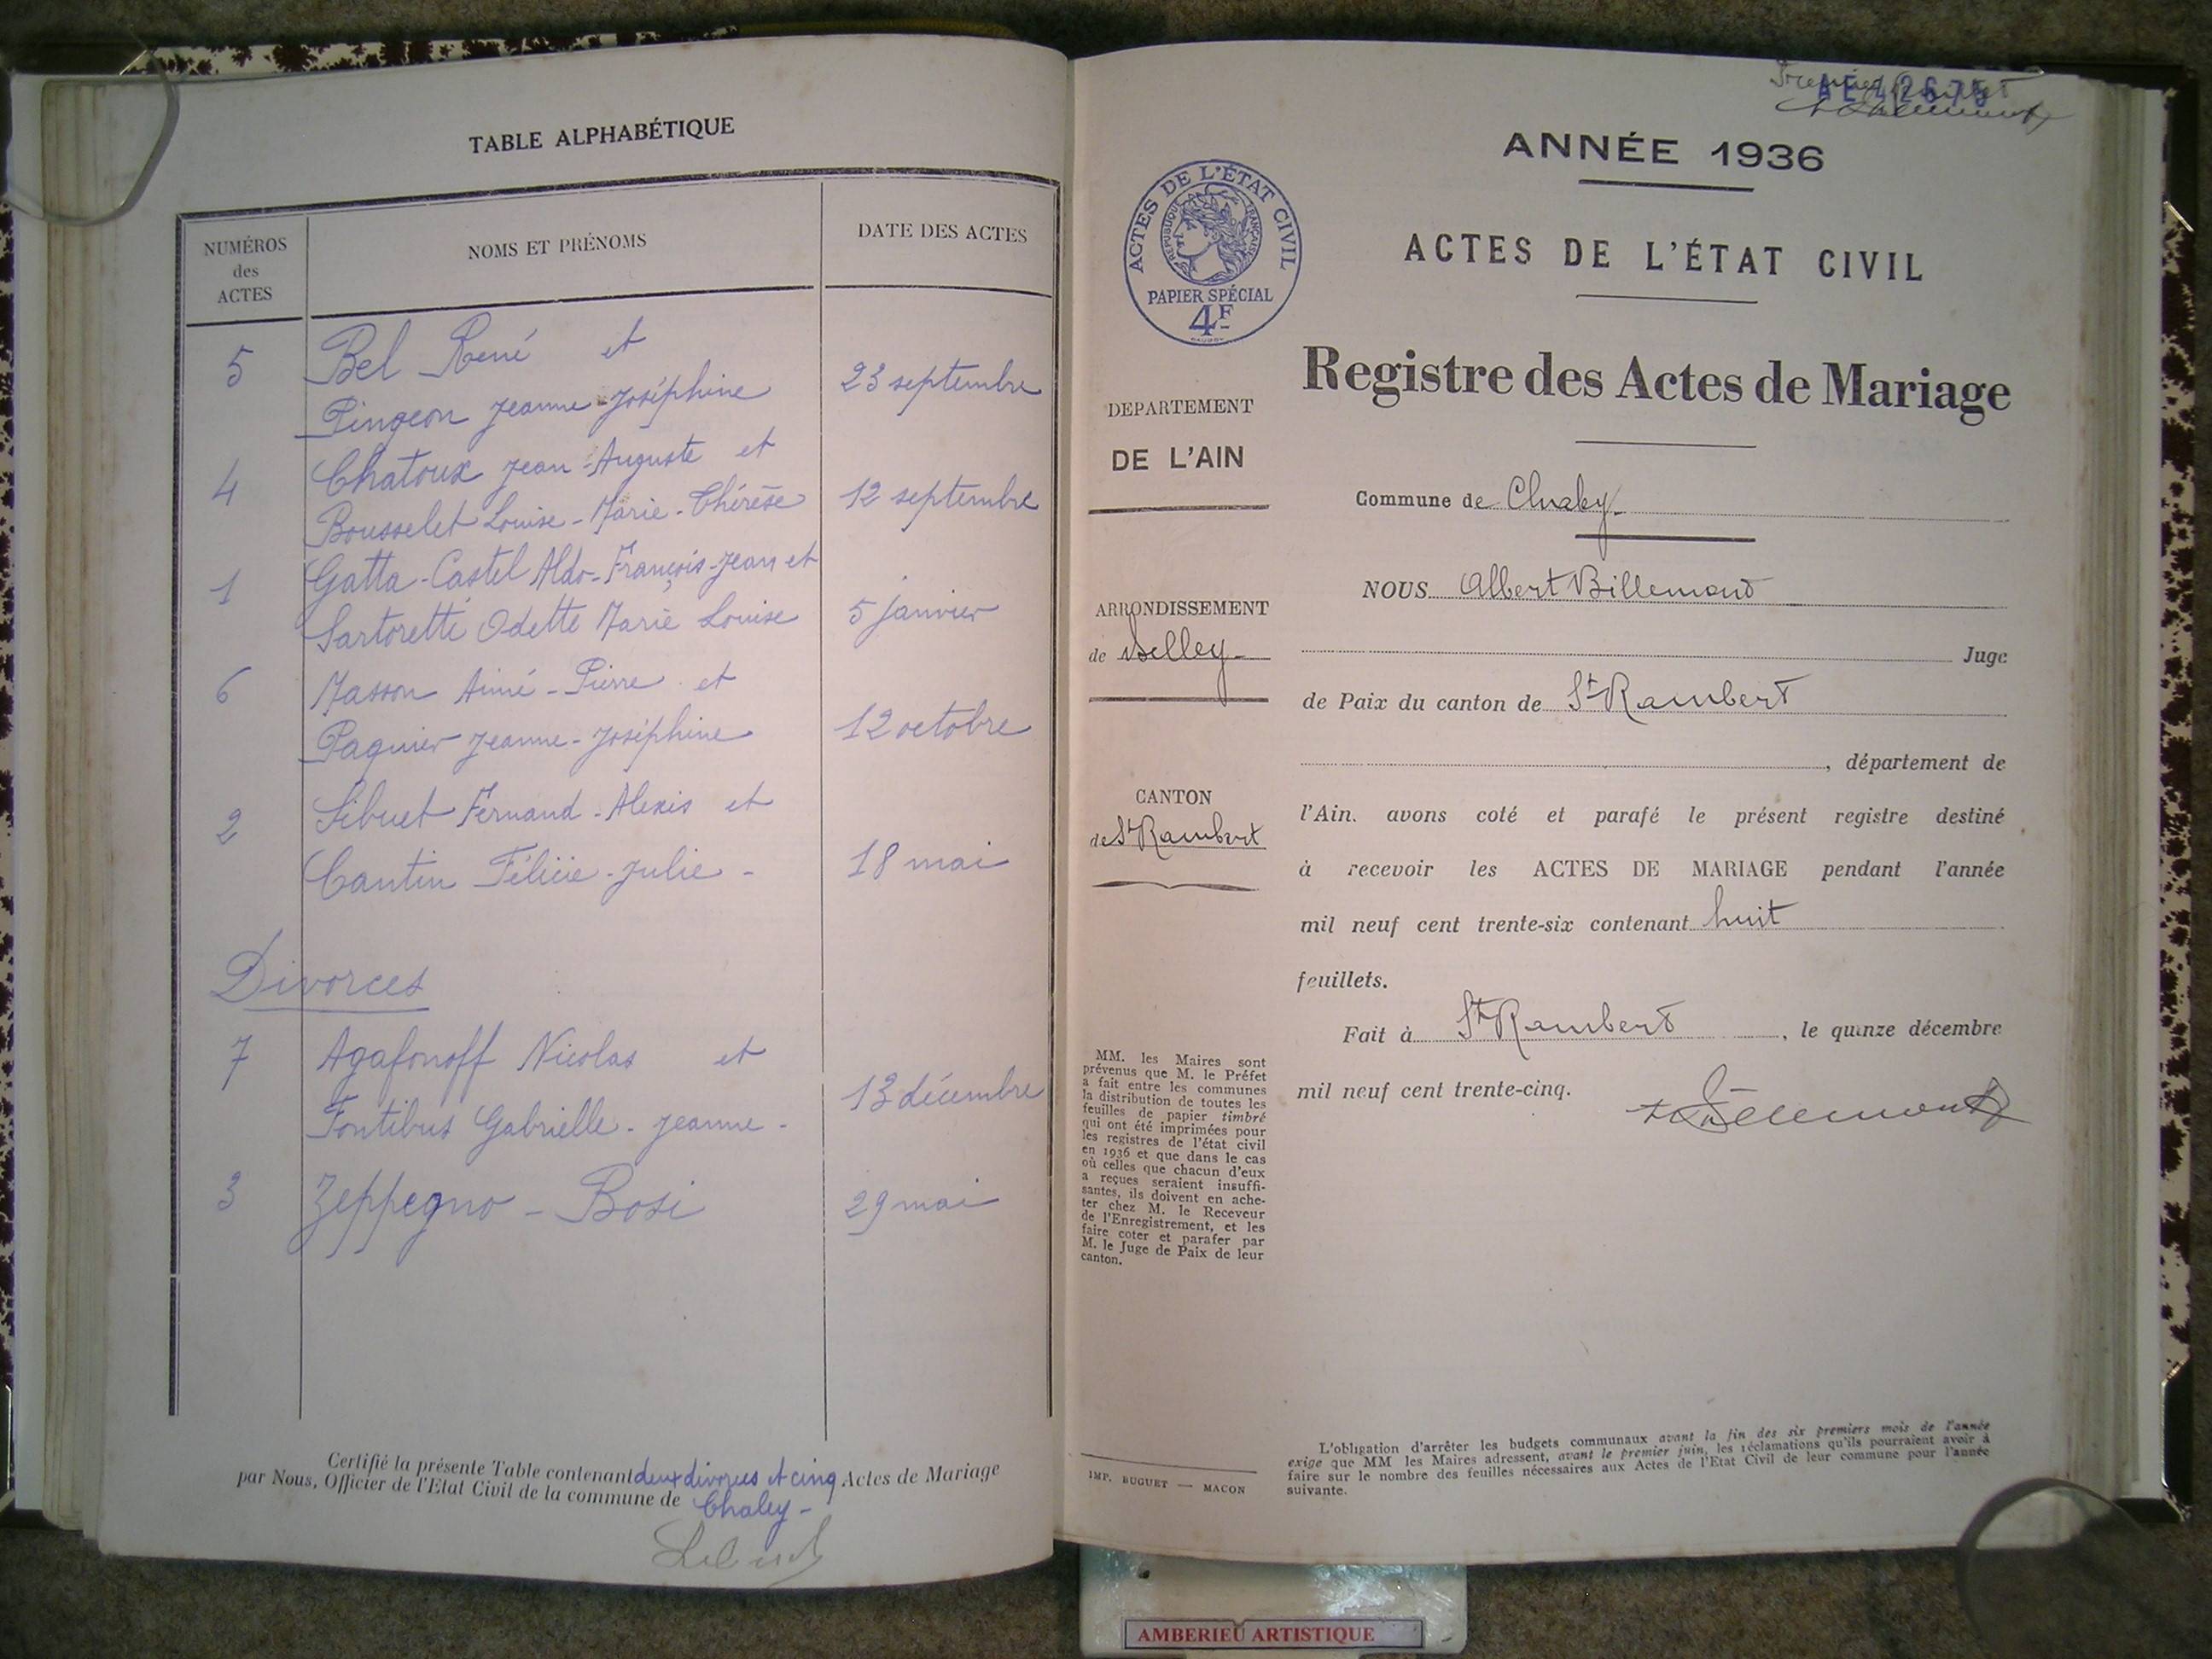 TABLE ALPHABÉTIQUE
NUMÉROS des ACTES
NOMS ET PRÉNOMS
DATE DES ACTES
5 Bel René et
Pingeon Jeanne-Joséphine 23 septembre
4 Chatoux Jean-Auguste et
Bousselet Louise-Marie-Thérèse 12 septembre
1 Gatta-Castel Aldo-François-Jean et
Sartoretti Odette Marie Louise 5 janvier
6 Masson Aimé-Pierre et
Paquier Jeanne-Joséphine 12 octobre
2 Sibuet Fernand-Alexis et
Cantin Félicie-Julie - 18 mai
Divorces
7 Agafonoff Nicolas et
Fontibus Gabrielle-Jeanne- 13 décembre
3 Zeppegno - Bosi 29 mai
Certifié la présente Table contenant deux divorces et cinq Actes de Mariage
par Nous, Officier de l'Etat Civil de la commune de Chaley-
AE42675
ANNÉE 1936
ACTES DE L'ÉTAT CIVIL
RÉPUBLIQUE FRANÇAISE
PAPIER SPÉCIAL
4F
ACTES DE L'ÉTAT CIVIL
Registre des Actes de Mariage
DEPARTEMENT
DE L'AIN
ARRONDISSEMENT
de Belley-
CANTON
de St Rambert
MM. les Maires sont
prévenus que M. le Préfet
a fait entre les communes
la distribution de toutes les
feuilles de papier timbré
qui ont été imprimées pour
les registres de l'état civil
en 1936 et que dans le cas
où celles que chacun d'eux
a reçues seraient insuffi-
santes, ils doivent en ache-
ter chez M. le Receveur
de l'Enregistrement, et les
faire coter et parafer par
M. le Juge de Paix de leur
canton.
IMP. BUGUET — MACON
Commune de Chaley.
NOUS Albert Billemand
Juge
de Paix du canton de St Rambert
, département de
l'Ain. avons coté et parafé le présent registre destiné
à recevoir les ACTES DE MARIAGE pendant l'année
mil neuf cent trente-six contenant huit
feuillets.
Fait à St Rambert, le quinze décembre
mil neuf cent trente-cinq.
L'obligation d'arrêter les budgets communaux avant la fin des six premiers mois de l'année
exige que MM les Maires adressent, avant le premier juin, les réclamations qu'ils pourraient avoir à
faire sur le nombre des feuilles nécessaires aux Actes de l'Etat Civil de leur commune pour l'année
suivante.
AMBERIEU ARTISTIQUE